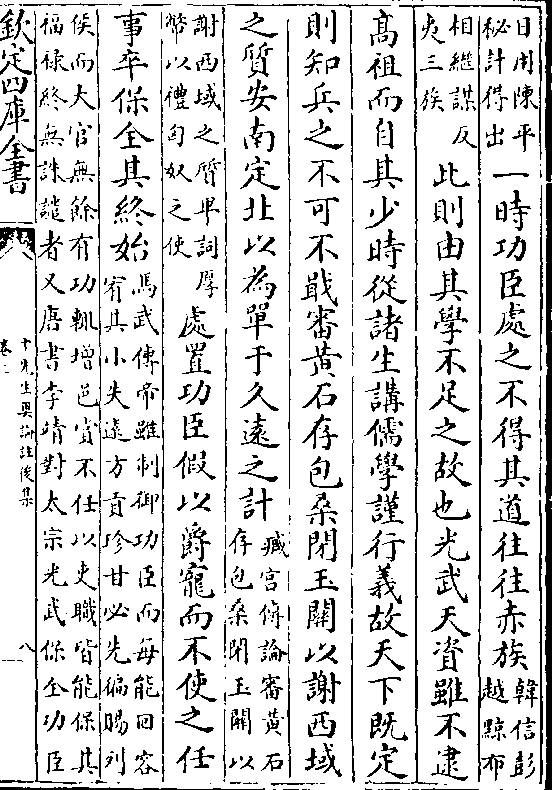 日用陳平
秘計得出
一時功臣處之不得其道往往赤族
韓信彭
越黥布
相繼謀反
夷三族
此則由其學不足之故也光武天資雖不逮
高祖而自其少時從諸生講儒學謹行義故天下既定
則知兵之不可不戢審黄石存包桑閉玉關以謝西域
之質安南定北以為單于久遠之計
臧宫傳論審黄石
存包桑閉玉關以
謝西域之質卑詞厚
幣以禮匈奴之使
處置功臣假以爵寵而不使之任
事卒保全其終始
馬武傳帝雖制御功臣而每能回容
宥其小失遠方貢珍甘必先徧賜列
侯而大官無餘有功輒增邑賞不任以吏職皆能保其
福禄終無誅譴者又唐書李靖對太宗光武保全功臣
欽定四庫全書
十先生奥論註後集
卷
八